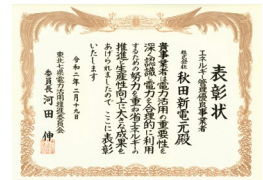 表彰状
エネルギー管理優良事業者
株式会社 秋田新電元殿
貴事業者は電力活用の重要性を
深く認識し電力を合理的に利用
するための努力を重ね省エネルギーの
推進と生産性向上に大きな成果を
あげられましたので ここに表彰
いたします
令和二年二月十九日
東北七県電力活用推進委員会
委員長 河田 伸